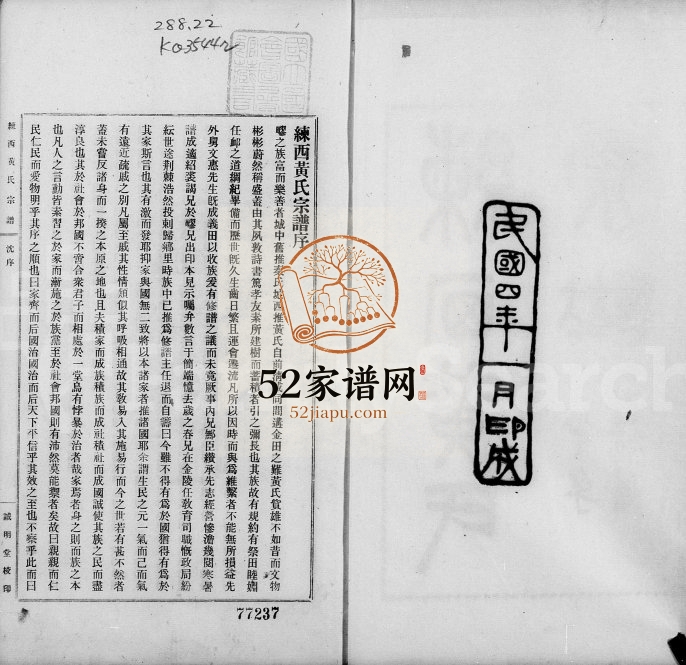 288.22
K03544r
練西黃氏宗譜序
䣜之族富而樂善者城中舊推秦氏城西推黃氏自前
同間遘金田之難黃氏貲雄不如昔而文物
彬彬蔚然稱盛蓋由其夙敦詩書篤孝友
所建樹而蓄
者引之彌長也其族故有規約有祭田睦婣
任卹之道綱紀畢備而歷世旣久生齒日繁且運會
流凡所以因時而興爲維繫者不能無所損益先
外舅文惠先生旣成義田以收族爰有修譜之議而未竟厥事內兄
臣繼承先志經營慘澹幾閱寒暑
譜成適紹裘謁兄於
兄出印本見示囑弁數言于簡端憶去歲之春兄在金陵任敎育司職慨政局紛
紜世途荆棘浩然投劾歸鄉里時族中已推爲修譜主任退而自籌曰今雖不得有爲於國猶得有爲於
其家斯言也其有激而發耶抑家與國無二致將以本諸家者推諸國耶宗謂生民之元一氣而已而氣
有遠近疏戚之別凡屬至戚其性情類似其呼吸相通故其敎易入其施易行而今之世若有甚不然者
蓋未嘗反諸身而一揆之本原之地也且夫積家而成族積族而成社積社而成國誠使其族之民而盡
淳良也其於社會於邦國不啻合衆君子而相處於一堂烏有悖暴於治者哉家焉者身之則而族之本
也凡人之言動皆素習之於家而漸施之於族黨至於社會邦國則有沛然莫能禦者矣故曰親親而仁
民仁民而愛物明乎其序之順也曰家齊而后國治國治而后天下平信乎其效之至也不察乎此而曰
練西黃氏宗譜
沈序
誠明堂校印
77237
52家谱网
52jiapu.com
民國四年十一月印成